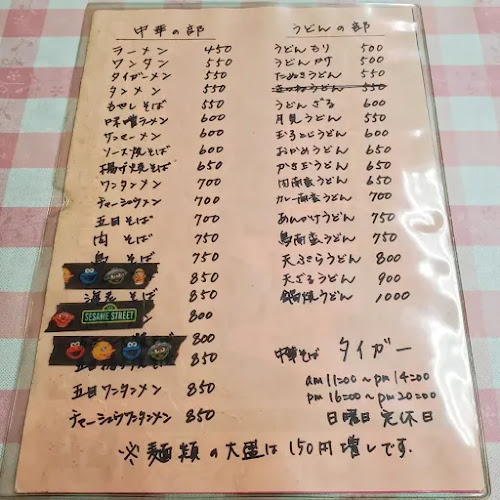 中華の部
ラーメン 450
ワンタン 550
タイガーメン 550
タンメン 550
もやしそば 550
味噌ラーメン 600
サンマーメン 600
ソース焼そば 600
揚げ焼そば 650
ワンタンメン 700
チャーシューメン 700
五目そば 700
肉そば 750
鳥そば 750
850
海老そば 850
SESAME STREET 800
800
850
五目ワンタンメン 850
チャーシューワンタンメン 850
うどんの部
うどんもり 500
うどんかけ 500
たぬきうどん 550
きつねうどん 550
うどんざる 600
月見うどん 550
玉子とじうどん 600
おかめうどん 650
かき玉うどん 650
肉南蛮うどん 650
カレー南蛮うどん 700
あんかけうどん 750
鳥南蛮うどん 750
天ぷらうどん 800
天ざるうどん 900
鍋焼うどん 1000
中華そば タイガー
am 11:00～pm 14:00
pm 16:00～pm 20:00
日曜日 定休日
※麺類の大盛は150円増しです.